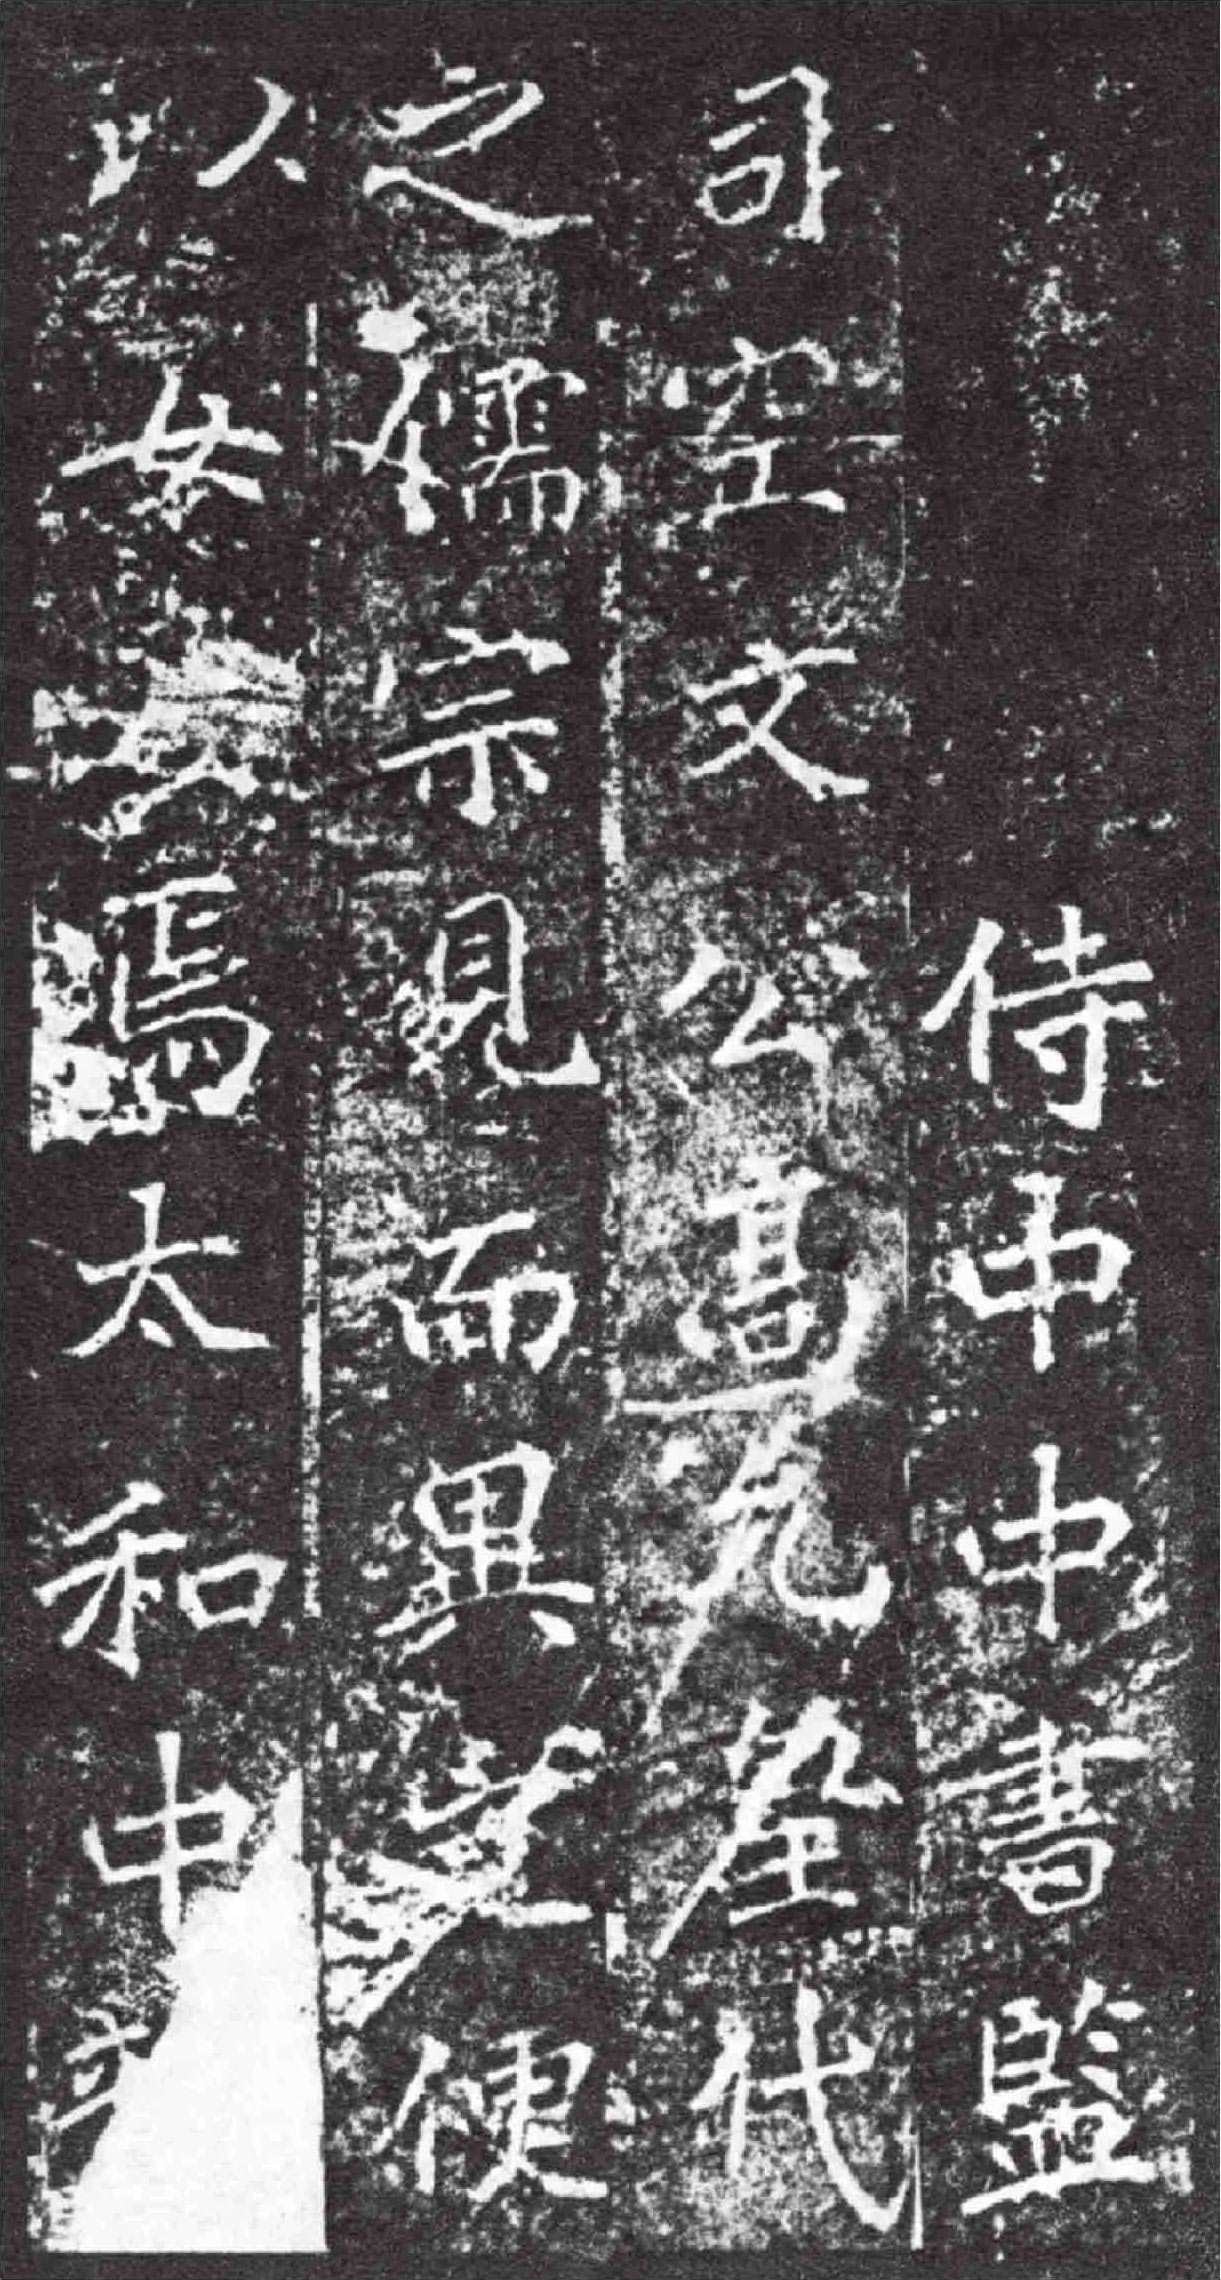 侍中中書監
司空文公高允代
之儒宗見而異便
以女妻焉太和中